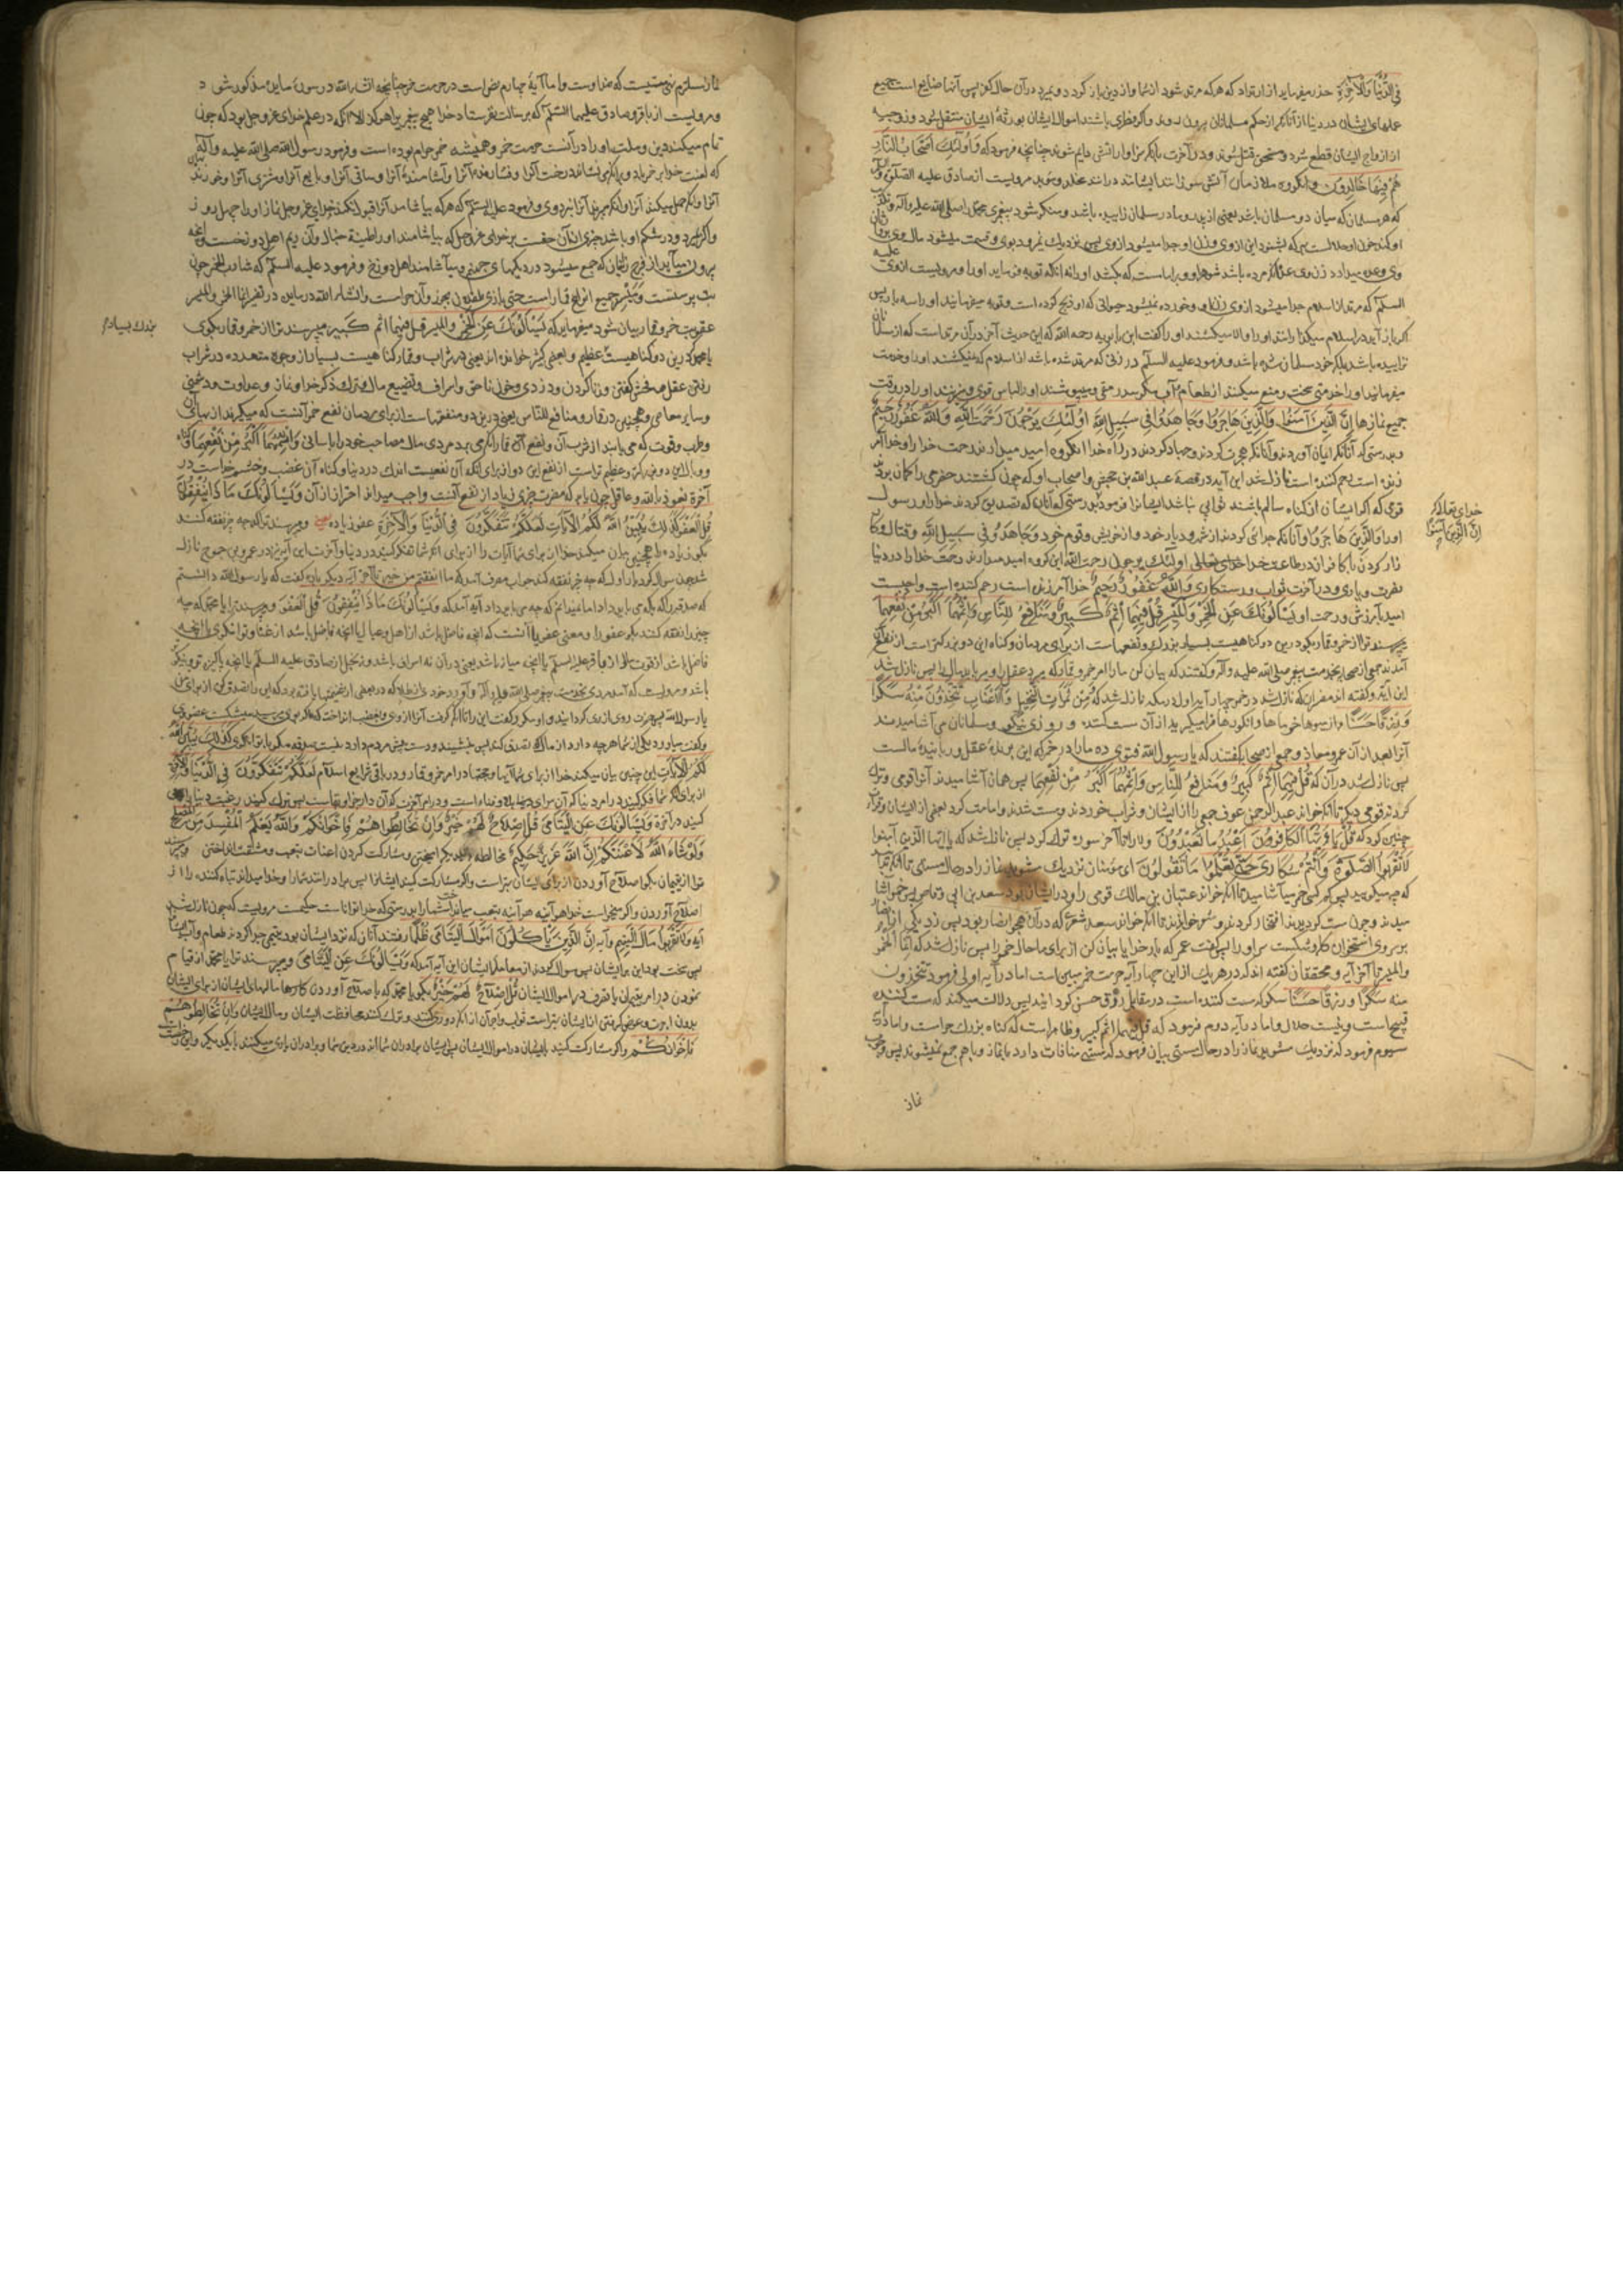 فی الدُّنْیَا وَالْآخِرَةِ حذر میفرماید از ارتداد که هرکه مرتد شود از شما و از دین باز گردد و بمیرد در آن حال کفر پس آنها ضایع است جمیع
عملهای ایشان در دنیا از آنکه از حکم مسلمانان بیرون روند و اگر فطری باشند اموال ایشان بورثهٔ ایشان منتقل شود و زوجیه
از ازواج ایشان قطع شود و مستحق قتل شوند و در آخرت بآنکه سزاوار آتش دایم شوند چنانچه فرمود که وَاُولَئِكَ اَصْحَابُ النَّارِ
هُمْ فِيهَا خَالِدُونَ و آنکروه ملازمان آتش سوزانند ایشانند در آنند مخلد و مؤبد مرویست از صادق علیه الصلوة و
که هر مسلمان که میان دو مسلمان باشد یعنی از پدر و مادر مسلمان زاییده باشد و منکر شود پیغمبری محمد صلی الله علیه وآله و
او کند خون او حلالست هر که بشنود این از وی و زن او جدا میشود از وی پس نزدیك نرود بوی و قسمت میشود مال وی
وی و عده میدارد زن وی
السلم که مرتد از اسلام جدا میشود از وی زن او و خورده نمیشود حیوانی که او ذبح کرده است و توبه میفرمایند او را سه بار پس
اگر باز آید در اسلام میگذارند او را و الا میکشند او را گفت ابن بابویه رحمه الله که این حدیث آخر در آن مرتد است که از مسلمانان
نزاییده باشد بلکه خود مسلمان شده باشد و فرمود علیه السلم در زنی که مرتد شده باشد از اسلام که نمیکشند او را و خدمت
میفرمایند او را خدمتی سخت و منع میکنند از طعام و آب مگر سد رمقی و میپوشند او را لباس قوی و میزنند او را در وقت
جمیع نمازها اِنَّ الَّذِينَ آمَنُوا وَالَّذِينَ هَاجَرُوا وَجَاهَدُوا فِي سَبِيلِ اللَّهِ اُولَئِكَ يَرْجُونَ رَحْمَتَ اللَّهِ وَاللَّهُ غَفُورٌ رَحِيمٌ
و بدرستی که آنانکه ایمان آوردند و آنانکه هجرت کردند و جهاد کردند در راه خدا آنکروه امید میدارند رحمت خدا را و خدا آمر
زنده است رحم کننده است نازل شد این آیه در قصهٔ عبد الله بن جحش و اصحاب او که چون کشتند حضرمی را گمان بردند
قومی که اگر ایشان از گناه سالم باشند ثوابی نباشد ایشانرا فرمود بدرستی که آنان که تصدیق کردند خدا را و رسول
او را وَالَّذِينَ هَاجَرُوا و آنانکه جدائی کردند از شهر و دیار خود و از خویش و قوم خود وَجَاهَدُوا فِي سَبِيلِ اللَّهِ و قتال و کا
خدای تعالی که
اِنَّ الَّذِينَ آمَنُوا
زار کردند با کافران در طاعت خدا خدای تعالی اولئك یرجون رحمت الله این گروه امید میدارند رحمت خدا را در دنیا
نصرت و یاری و در آخرت ثواب و رستکاری وَاللَّهُ غَفُورٌ رَحِيمٌ خدا آمرزنده است رحم کننده است واجبست
امید بآمرزش و رحمت او يَسْأَلُونَكَ عَنِ الْخَمْرِ وَالْمَيْسِرِ قُلْ فِيهِمَا اِثْمٌ كَبِيرٌ وَمَنَافِعُ لِلنَّاسِ وَاِثْمُهُمَا اَكْبَرُ مِنْ نَفْعِهِمَا
میپرسند ترا از خمر و قمار بگو درین دو گناهیست بسیار بزرك و نفعهاست از برای مردمان و گناه این دو بزرگتر است از نفع آن
آمدند جمعی از صحابه بخدمت پیغمبر صلی الله علیه و آله و گفتند که بیان کن ما را امر خمر و قمار که میبرد عقل را و میرباید مال را پس نازل شد
این آیه و گفته اند مفسران که نازل شد در خمر چهار آیه اول در مکه نازل شد که وَمِنْ ثَمَرَاتِ النَّخِيلِ وَالْاَعْنَابِ تَتَّخِذُونَ مِنْهُ سَكَرًا
وَرِزْقًا حَسَنًا و از میوها خرماها و انگورها فرا میگیرید از آن مست کننده و روزی نیکو و مسلمانان می آشامیدند
آنرا بعد از آن عمر و معاذ و جمعی از صحابه گفتند که یا رسول الله فتوی ده ما را در خمر که این برندهٔ عقل و ربایندهٔ مالست
پس نازل شد در آن که قُلْ فِيهِمَا اِثْمٌ كَبِيرٌ وَمَنَافِعُ لِلنَّاسِ وَاِثْمُهُمَا اَكْبَرُ مِنْ نَفْعِهِمَا پس همان آشامیدند آنرا قومی و ترك
کردند قومی دیگر تا آنکه خواند عبد الرحمن عوف جمعی را از ایشان و شراب خوردند و مست شدند و امامت کرد بعضی از ایشان و قرائت
چنین کرد که قُلْ يَا اَيُّهَا الْكَافِرُونَ اَعْبُدُ مَا تَعْبُدُونَ و لا را تا آخر سوره ترك کرد پس نازل شد که یا ایها الذین آمنوا
لَا تَقْرَبُوا الصَّلٰوةَ وَاَنْتُمْ سُكَارَى حَتَّى تَعْلَمُوا مَا تَقُولُونَ ای مؤمنان نزدیك مشوید نماز را در حال مستی تا آنکه بدانید
که چه میگویید پس کم کسی خمر میآشامید تا آنکه خواند عتبان بن مالك قومی را و در ایشان بود سعد بن ابی وقاص پس خمر آشا
میدند و چون مست گردیدند افتخار کردند و شعر خواندند تا آنکه خواند سعد شعری که در آن هجو انصار بود پس زد یکی از انصار
بر وی استخوان کله و شکست سر او را پس گفت عمر که بار خدایا بیان کن از برای ما حال خمر را پس نازل شد که اِنَّمَا الْخَمْرُ
والمیسر تا آخر آیه و محققان گفته اند که در هر یك از این چهار آیه حرمت خمر مبین است اما در آیه اولی فرمود تتخذون
منه سَكَرًا وَرِزْقًا حَسَنًا سکر که مست کننده است در مقابل رزق حسن کردانید پس دلالت میکند که مست کننده
قبیح است و نیست حلال و اما در آیه دوم فرمود که قل فیهما اثم کبیر و ظاهر است که گناه بزرك حرام است و اما در
سیوم فرمود که نزدیك مشوید نماز را در حال مستی بیان فرمود که مستی منافات دارد با نماز و با هم جمع نمیشوند پس وجوب
نماز
نماز مستلزم نفی مستیست که ضد اوست و اما آیهٔ چهارم نص است در حرمت خمر چنانچه انشاء الله در سورهٔ مایده مذکور شود
و مرویست از باقر و صادق علیهما السلم که برسالت نفرستاد خدا هیچ پیغمبر را هرگز الا آنکه در علم خدای عز و جل بود که چون
تمام میکند دین و ملت او را در آنست حرمت خمر و همیشه خمر حرام بوده است و فرمود رسول الله صلی الله علیه و آله
که لعنت خدا بر خمر باد و بر آنکه بنشاند درخت آنرا و فشارندهٔ آنرا و آشامندهٔ آنرا و ساقی آنرا و بایع آنرا و مشتری آنرا و خورنده
آنرا و آنکه حمل میکند آنرا و آنکه میبرند آنرا نزد وی و فرمود علیه السلم که هرکه بیاشامد آنرا قبول نکند خدای عز و جل نماز او را چهل روز
و اگر بمیرد و در شکم او باشد چیزی از آن حقست بر خدای عز و جل که بیاشامند او را طینة خبال و آن ریم اهل دوزخست و آنچه
بیرون میآید از فرج زنان که جمع میشود در دیکهای جهنم و میآشامند اهل دوزخ و فرمود علیه السلم که شارب الخمر چون
بت پرستست وَمَيْسِرِ جمیع انواع قمار است حتی بازی طفلان بجوز و آن حرامست و انشاء الله در مایده در تفسیر انما الخمر والمیسر
عقوبت خمر و قمار بیان شود میفرماید که يَسْأَلُونَكَ عَنِ الْخَمْرِ والمیسر قل فیهما اثم کَبِیر میپرسند ترا از خمر و قمار بگوی
بزرك بسیار
یا محمد که درین دو گناهیست عظیم و بعضی کثیر خوانده اند یعنی در شراب و قمار گناهیست بسیار از وجوه متعدده در شراب
رفتن عقل و فحش گفتن و زنا کردن و دزدی و خون ناحق و اسراف و تضییع مال و ترك ذکر خدا و نماز و عداوت و دشمنی
و سایر معاصی و همچنین در قمار و منافع للناس یعنی درین دو منفعتهاست از برای مردمان نفع خمر آنست که میگیرند از بهای آن
و طرب و قوت که می یابند از شرب آن و نفع آن قمار آنکه می برد مردی مال مصاحب خود را بآسانی وَاِثْمُهُمَا اَكْبَرُ مِنْ نَفْعِهِمَا
و وبال این دو بزرگتر و عظیم تر است از نفع این دو از برای آنکه آن نفعیست اندك در دنیا و گناه آن غضب و خشم خداست در
آخرة نعوذ بالله و عاقل چون یابد که مضرت چیزی زیاد از نفع آنست واجب میداند احتراز از آن وَيَسْأَلُونَكَ مَا ذَا يُنْفِقُونَ
قُلِ الْعَفْوَ كَذَلِكَ يُبَيِّنُ اللَّهُ لَكُمُ الْآيَاتِ لَعَلَّكُمْ تَتَفَكَّرُونَ فِي الدُّنْيَا وَالْآخِرَةِ و میپرسند ترا که چه چیز نفقه کنند
بگو زیاده را همچنین بیان میکند خدا از برای شما آیات را از برای آنکه شما تفکر کنید در دنیا و آخرت این آیه نیز در عمرو بن جموح نازل
شد چون سؤال کرد بار اول که چه چیز نفقه کند جواب مصرف آمد که ما انفقتم من خیر تا آخر آیه دیگر باره گفت که یا رسول الله دانستم
که صدقه را که بکه می باید داد اما نمیدانم که چه می باید داد آیه آمد که وَيَسْأَلُونَكَ مَا ذَا يُنْفِقُونَ قُلِ الْعَفْوَ و میپرسند ترا یا محمد که چه
چیز را نفقه کنند بگو عفو را و معنی عفو یا آنست که آنچه فاضل باشد از اهل و عیال یا آنچه فاضل باشد از غنا و توانگری یا آنچه
فاضل باشد از قوت سال از باقر علیه السلم یا آنچه میانه باشد یعنی در آن نه اسراف باشد و نه بخل از صادق علیه السلم یا آنچه پاکیزه تر و نیکوتر
باشد و مرویست که آمد مردی بخدمت پیغمبر صلی الله علیه وآله و آورد
لَكُمُ الْآيَاتِ این چنین بیان میکند خدا از برای شما آیتها و حجتها در امر خمر و قمار و در باقی شرایع اسلام لَعَلَّكُمْ تَتَفَكَّرُونَ فِي الدُّنْيَا وَالْآخِرَةِ
از برای آنکه شما فکر کنید در امر دنیا که آن سرای بلا و فناء است و در امر آخرت که آن دار جزا و بقاست پس ترك کنید رغبت دنیا را و
کنید در آخرة وَيَسْأَلُونَكَ عَنِ الْيَتَامَى قُلْ اِصْلَاحٌ لَهُمْ خَيْرٌ وَاِنْ تُخَالِطُوهُمْ فَاِخْوَانُكُمْ وَاللَّهُ يَعْلَمُ الْمُفْسِدَ مِنَ الْمُصْلِحِ
وَلَوْ شَاءَ اللَّهُ لَاَعْنَتَكُمْ اِنَّ اللَّهَ عَزِيزٌ حَكِيمٌ مخالطه بیکدیگر آمیختن و مشارکت کردن اعنات بتعب و مشقت انداختن
ترا از یتیمان بگو اصلاح آوردن از برای ایشان بهتر است و اگر مشارکت کنید ایشانرا پس برادرانند شما را و خدا میداند تباه کننده را از
اصلاح آوردن و اگر میخواست خدا هر آینه هر آینه بتعب میانداخت شما را بدرستی که خدا تواناست حکیمست مرویست که چون نازل شد
آیه وَلَا تَقْرَبُوا مَالَ الْيَتِيمِ و آیه اِنَّ الَّذِينَ يَأْكُلُونَ اَمْوَالَ الْيَتَامَى ظُلْمًا رفتند آنان که نزد ایشان بود یتیمی جدا کردند طعام و آب ایشان
پس سخت بود این بر ایشان پس سؤال کردند از معامله با ایشان این آیه آمد که وَيَسْأَلُونَكَ عَنِ الْيَتَامَى و میپرسند ترا یا محمد از قیام
نمودن در امر یتیمان یا تصرف در اموال ایشان قُلْ اِصْلَاحٌ لَهُمْ خَيْرٌ بگو یا محمد که باصلاح آوردن کارها و مالهای ایشان از برای ایشان
بدون اجرت و عوض گرفتن از ایشان بهتر است ثواب و اجر آن از آنکه دوری کنند و ترك کنند محافظت ایشان و مال ایشان وَاِنْ تُخَالِطُوهُمْ
فَاِخْوَانُكُمْ و اگر مشارکت کنید با ایشان در اموال ایشان پس ایشان برادران شما اند در دین شما و برادران یاری میکنند با یکدیگر و این رخصت